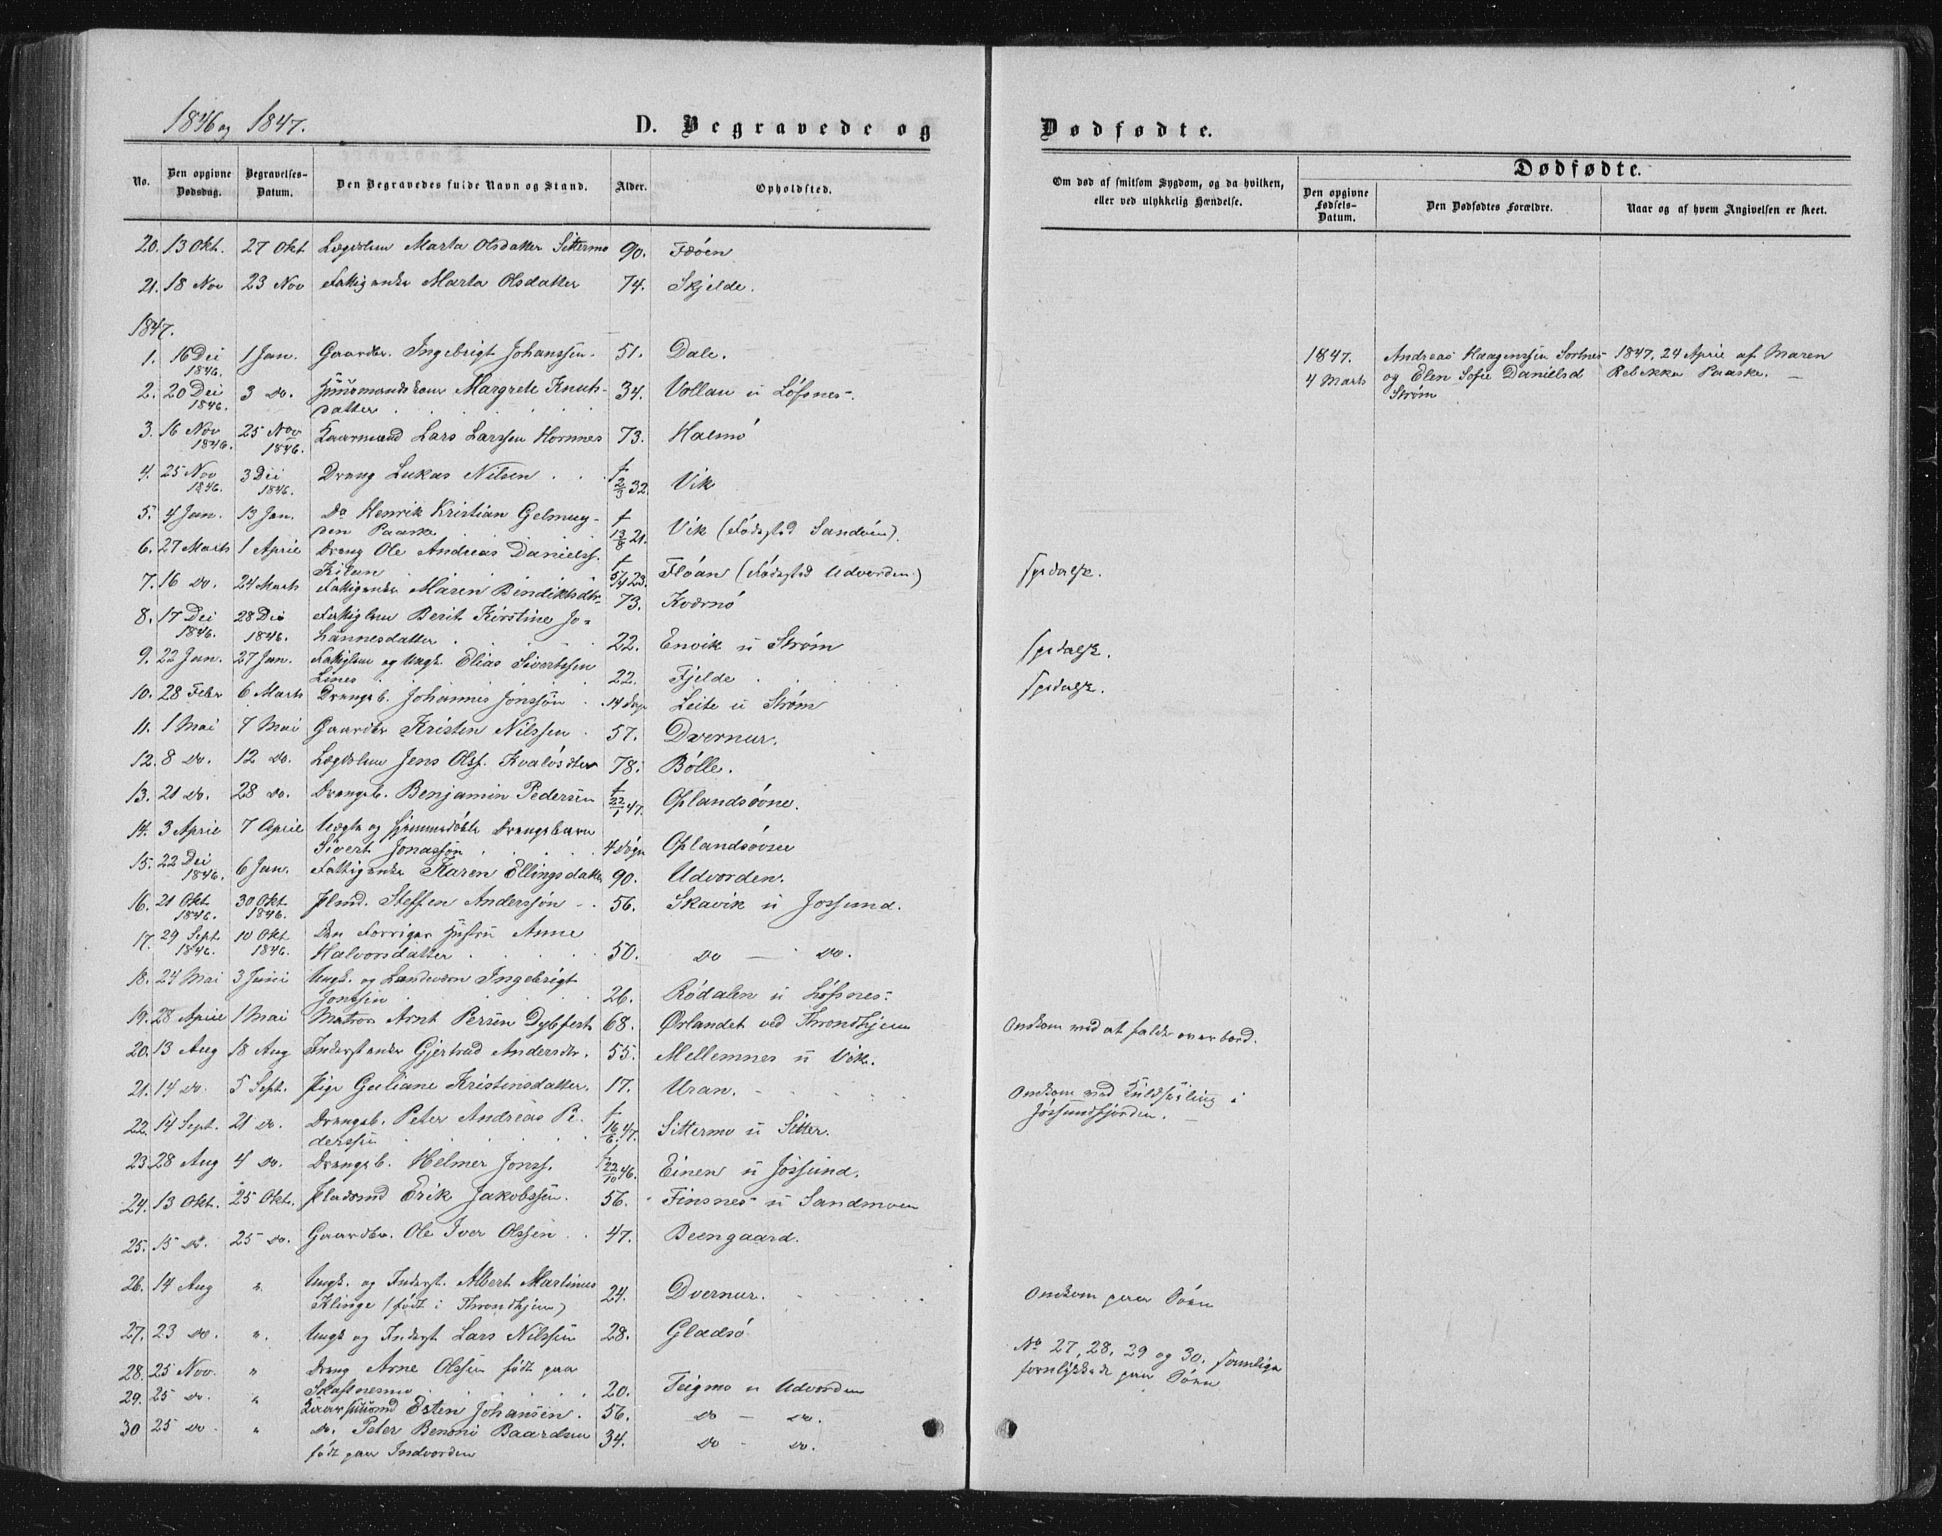 1846 og 1847.
D. Begravede og
Dødfødte.
No.
Den opgivne Dødsdag.
Begravelses-Datum.
Den Begravedes fulde Navn og Stand.
Alder.
Opholdsted.
Om død af smitsom Sygdom, og da hvilken,
eller ved ulykkelig Hændelse.
Dødfødte.
Den opgivne Fødsels-Datum.
Den Dødfødtes Forældre.
Naar og af hvem Angivelsen er skeet.
20. 13 Okt. 27 Okt Lægdslem Marta Olsdatter Sittermo 90. Fæøen
21. 18 Nov 23 Nov Fattigenke Marta Olsdatter 74. Skjelde.
1847.
1. 16 Dei 1846. 1 Jan. Gaardbr. Ingebrigt Johanssen. 51. Dale.
1847. 4 Marts
Andreas Haagenssen Sortnes
og Elen Sofie Danielsd
Strøm
1847, 24 April af Maren
Rebekka Paaske. —
2. 20 Dei 1846. 3 do. Huusmandskone Margrete Knuts-
datter 34. Vollan u Løfsnes.
3. 16 Nov 1846. 25 Nov 1846. Kaarmand Lars Larssen Hornnes 73. Halmø
4. 25 Nov 1846. 3 Dei 1846. Dreng Lukas Nilsen f 2/3 32. Vik
5. 4 Jan. 13 Jan. Do Henrik Kristian Gelmuy-
den Paaske f 13/8 21. Vik (Fødested Sandøen).
6. 27 Marts 1 April Dreng Ole Andreas Danielss.
Kilen f 5/4 23. Fløan (Fødested Udvorden) spedalsk.
7. 16 do. 24 Marts Fattigenke Maren Bendiktsdtr 73. Kvernø
8. 17 Dei 1846. 28 Dei 1846. Fattiglem Berit Kirstine Jo-
hannesdatter 22. Envik u Strøm spedalsk.
9. 22 Jan. 27 Jan. Fattiglem og Ungk. Elias Sivertssen
Lines 22. Fjelde spedalsk.
10. 28 Febr 6 Marts Drengeb. Johannes Jonssøn 14 Dage Leite u Strøm
11. 1 Mai 7 Mai Gaardbr Kristen Nilssen 57. Dvernur.
12. 8 do. 12 do. Lægdslem Jens Olss. Kvaløsæter 78. Bølle.
13. 21 do. 28 do. Drengeb. Benjamin Pedersen f 22/1 47. Oplandsøvne.
14. 3 April 7 April Uægte og hjemmedøbte Drengebarn
Sivert Jonassøn 4 Døgn Oplandsøvne
15. 22 Dei 1846. 6 Jan. Fattigenke Karen Ellingsdatter 90. Udvorden.
16. 21 Okt 1846. 30 Okt. 1846. Hmd. Steffen Anderssøn 56. Skavik u Jossund.
17. 29 Sept 1846. 10 Okt 1846. Den Forriges Hustru Anne
Halvorsdatter 50. do — do.
18. 24 Mai 3 Juni Ungk. og Landværn Ingebrigt
Jonssen 26. Rødalen u Løfsnes.
19. 28 April 1 Mai Matros Arnt Persen Dybfest 68. Ørlandet ved Throndhjem Omkom ved at falde overbord.
20. 13 Aug 18 Aug Inderstenke Gjertrud Andersdtr. 55. Mellemnes u Vik.
21. 14 do. 5 Sept. Pige Guliane Kristensdatter. 17. Uran. Omkom ved Kuldseiling i
Jøssundfjorden.
22. 14 Sept. 21 do. Drengeb. Peter Andreas Pe-
derssen f 16/6 47. Sittermo u Sitter.
23. 28 Aug 4 do. Drengeb. Helmer Jonss. f 22/10 46. Einen u Jøssund.
24. 13 Okt. 25 Okt. Pladsmd Erik Jakobssøn. 56. Finsnes u Sandmoen
25. 15 do. 25 do. Gaardbr. Ole Iver Olssen 47. Beengaard.
26. 14 Aug " Ungk. og Inderst. Albert Martinus
Klinge (født i Throndhjem) 24. Dvernur. Omkom paa Søen
27. 23 do. " Ungk og Inderst. Lars Nilssen 28. Gladsø No 27, 28, 29 og 30. samtlige
forulykkede paa Søen
28. 25 Nov. " Dreng Arne Olssen født paa
Skafnesmo 20. Teigmo u Udvorden
29. 25 do. " Esten Johansen. 56. do — do.
30 25 do. " do. Peter Benoni Baardsen 34. do - do.
født paa Indvorden